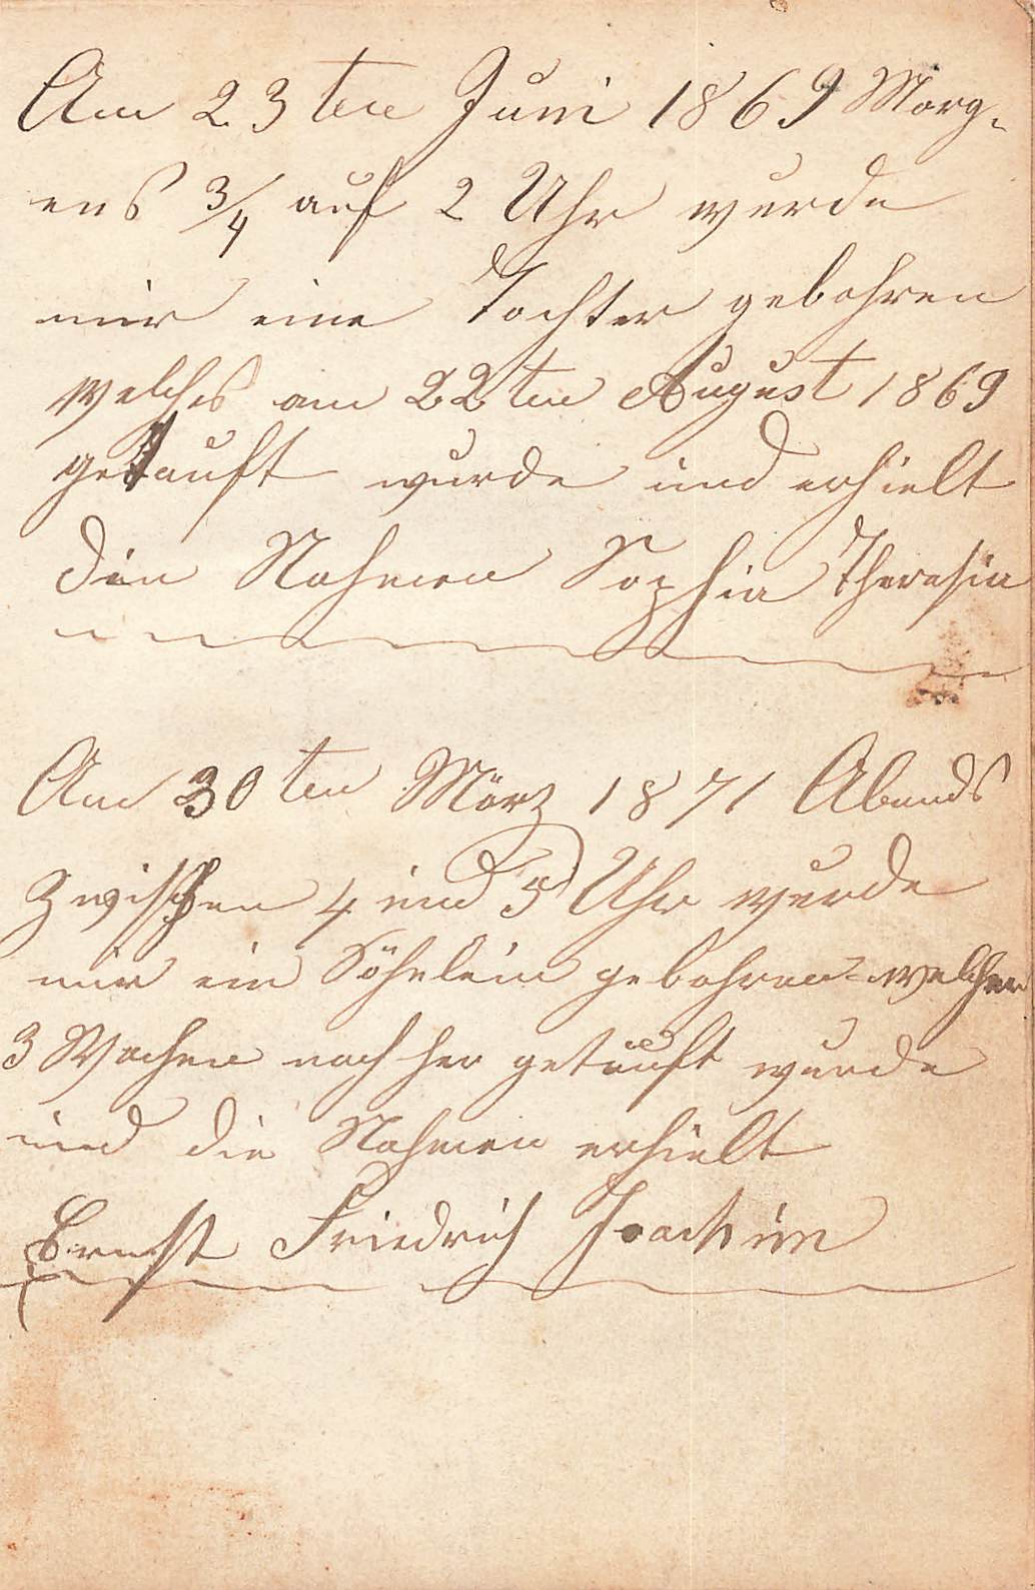 Am 23ten Juni 1869 Morg-
ens 3/4 auf 2 Uhr wurde
mir eine Tochter gebohren
welches am 22ten August 1869
getauft wurde und erhielt
den Nahmen Sophia Theresia
Am 30ten März 1871 Abends
zwischen 4 und 5 Uhr wurde
mir ein Söhnlein gebohren welcher
3 Wochen nach her getauft wurde
und die Nahmen erhielt
Ernst Friedrich Joachim